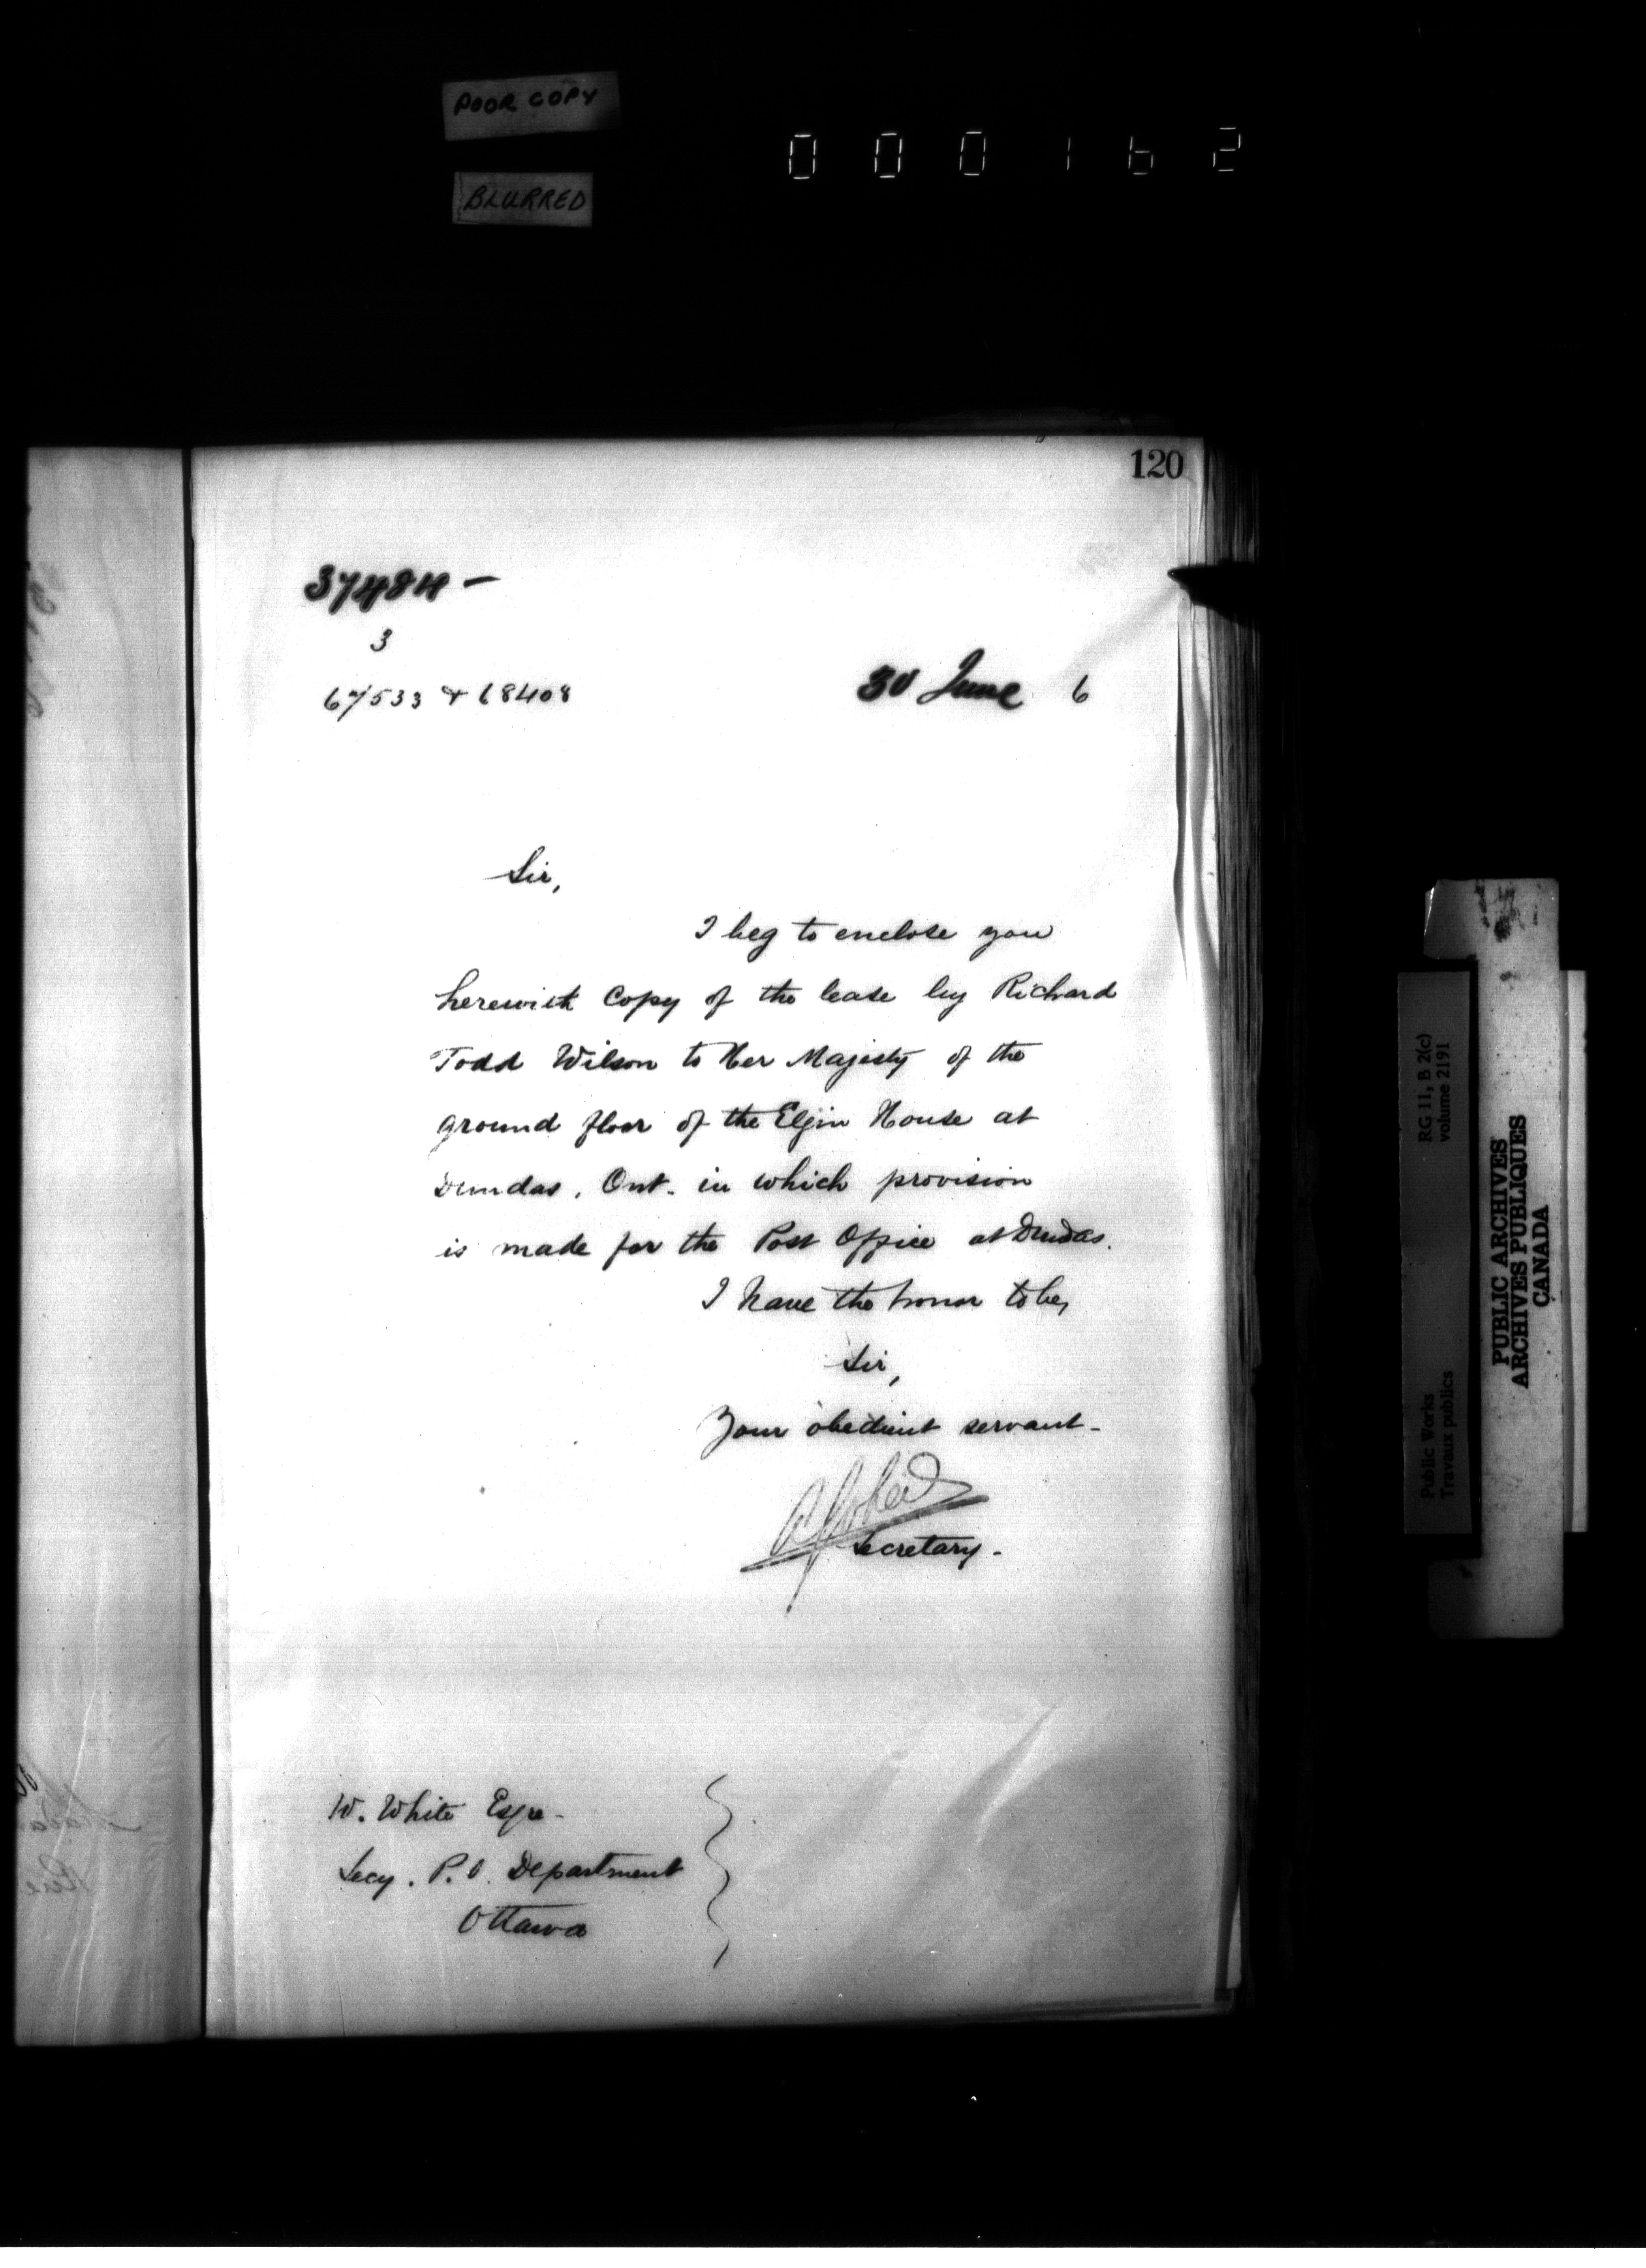 POOR COPY
000162
BLURRED
120
37484 -
3
67533 & 68408
30 June 6
Sir,
I beg to enclose you
herewith Copy of the lease by Richard
Todd Wilson to Her Majesty of the
ground floor of the Elgin House at
Dundas, Ont. in which provision
is made for the Post Office at Dundas.
I have the honor to be,
Sir,
Your obedient servant -
Secretary -
W. White Esqre -
Secy. P.O. Department
Ottawa
RG 11, B 2(c)
volume 2191
Public Works
Travaux publics
PUBLIC ARCHIVES
ARCHIVES PUBLIQUES
CANADA